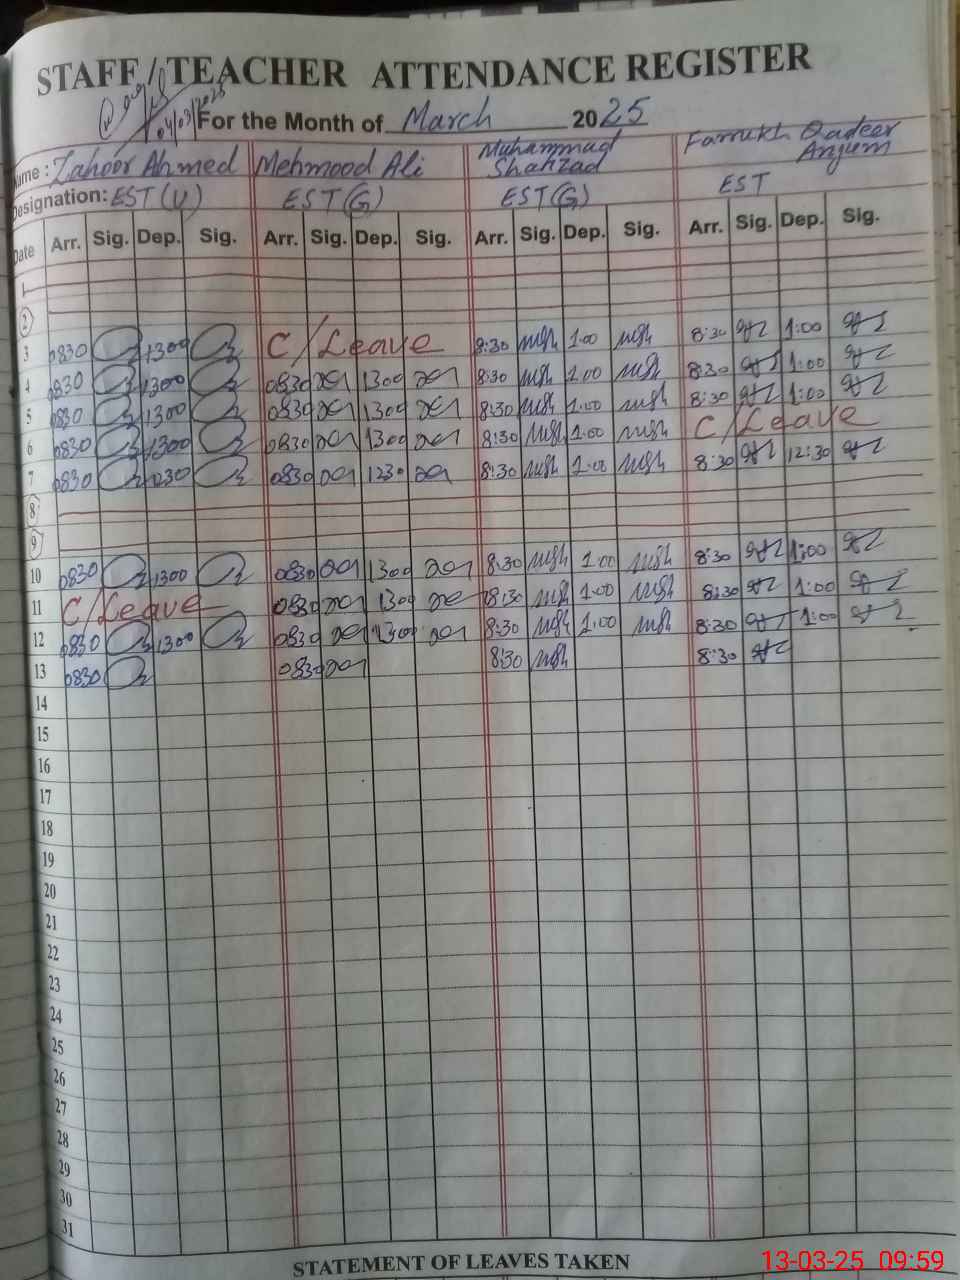 STAFF / TEACHER ATTENDANCE REGISTER
04/03/2025
For the Month of March 2025
Name : Zahoor Ahmed Mehmood Ali Muhammad Shahzad Farrukh Qadeer Anjum
Designation: EST (U) EST (G) EST (G) EST
Date Arr. Sig. Dep. Sig. Arr. Sig. Dep. Sig. Arr. Sig. Dep. Sig. Arr. Sig. Dep. Sig.
1
2
3 0830 1300 C/Leave 8:30 1:00 8:30 1:00
4 0830 1300 0830 1300 8:30 1:00 8:30 1:00
5 0830 1300 0830 1300 8:30 1:00 8:30 1:00
6 0830 1300 0830 1300 8:30 1:00 C/Leave
7 0830 1230 0830 1230 8:30 1:00 8:30 12:30
8
9
10 0830 1300 0830 1300 8:30 1:00 8:30 1:00
11 C/Leave 0830 1300 8:30 1:00 8:30 1:00
12 0830 1300 0830 1300 8:30 1:00 8:30 1:00
13 0830 0830 8:30 8:30
14
15
16
17
18
19
20
21
22
23
24
25
26
27
28
29
30
31
STATEMENT OF LEAVES TAKEN
13-03-25 09:59